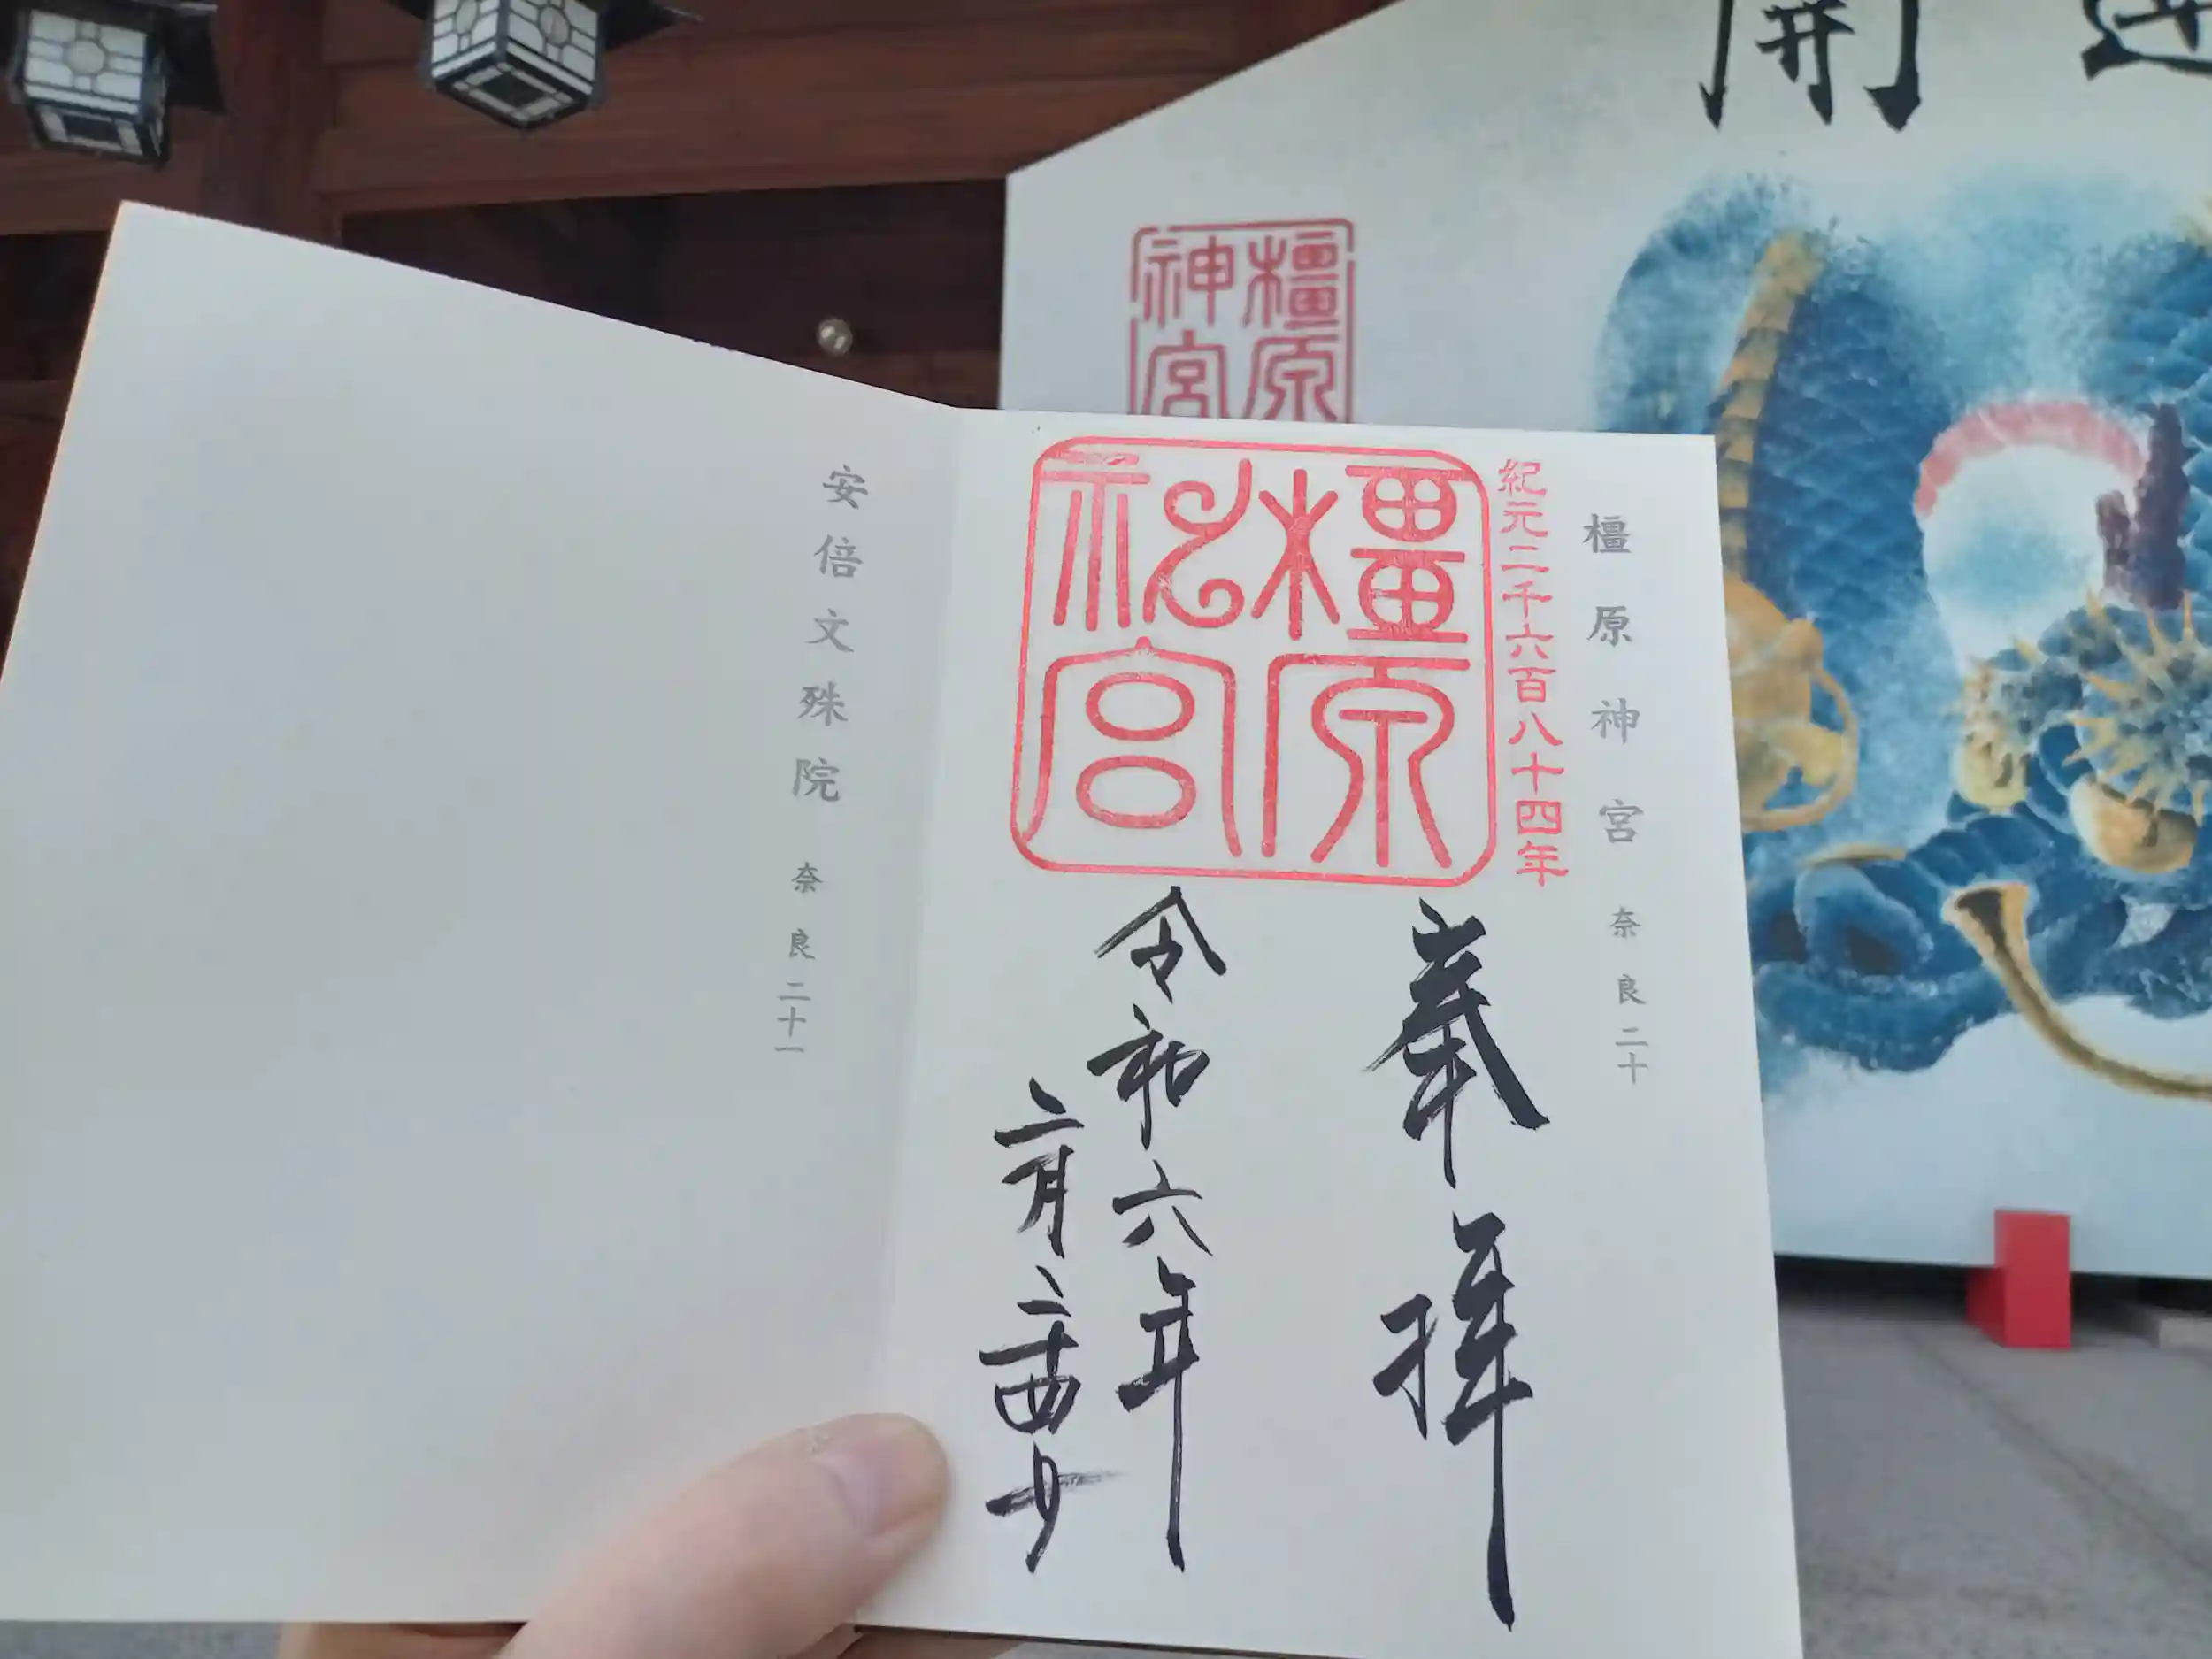 開運
橿原
神宮
橿原神宮 奈良二十
紀元二千六百八十四年
橿原
神宮
奉拝
令和六年
二月二十四日
安倍文殊院 奈良二十一